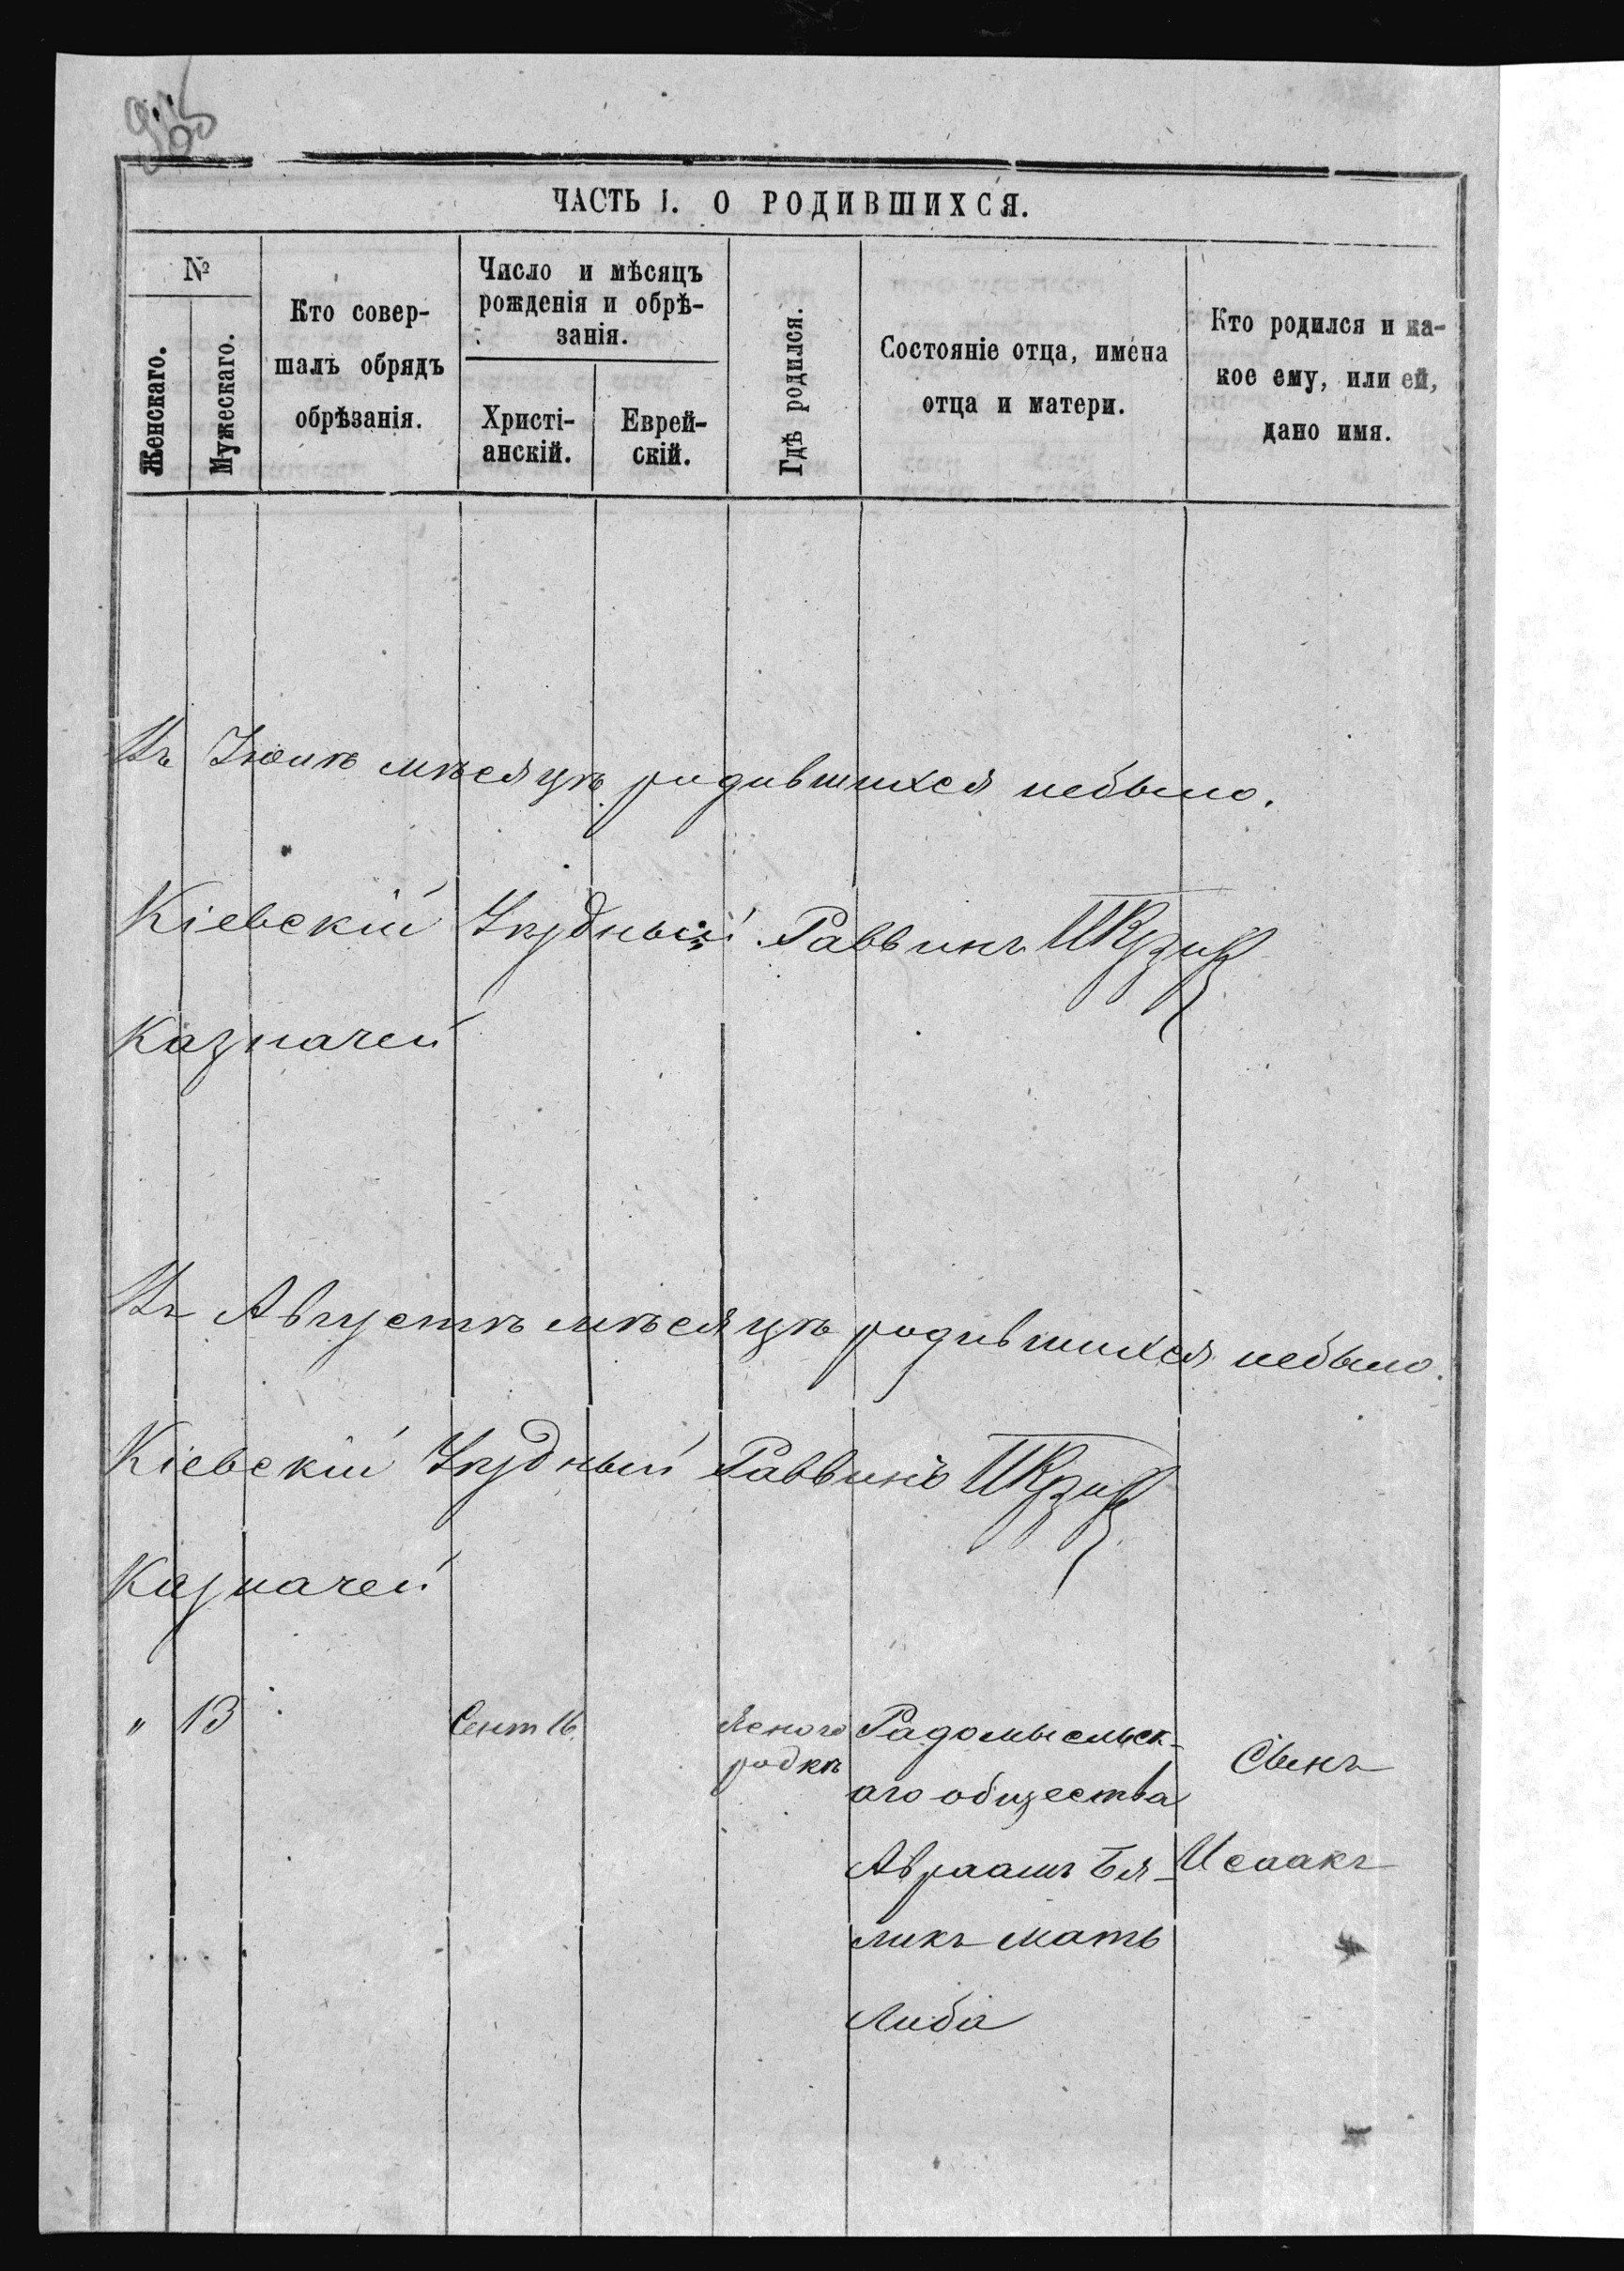 ЧАСТЬ I. О РОДИВШИХСЯ.
№
Женскаго.
Мужескаго.
Кто совер-
шалъ обрядъ
обрѣзанія.
Число и мѣсяцъ
рожденія и обрѣ-
занія.
Христі-
анскій.
Еврей-
скій.
Гдѣ родился.
Состояніе отца, имена
отца и матери.
Кто родился и ка-
кое ему, или ей,
дано имя.
Въ Іюлѣ мѣсяцѣ родившихся небыло.
Кіевскій Уѣздный Раввинъ
Казначей
Въ Августѣ мѣсяцѣ родившихся небыло.
Кіевскій Уѣздный Раввинъ
Казначей
" 13 Сент 16
Ясного
родкѣ
Радомысльск-
аго общества
Авраамъ Бя-
ликъ мать
Либа
Сынъ
Исаакъ